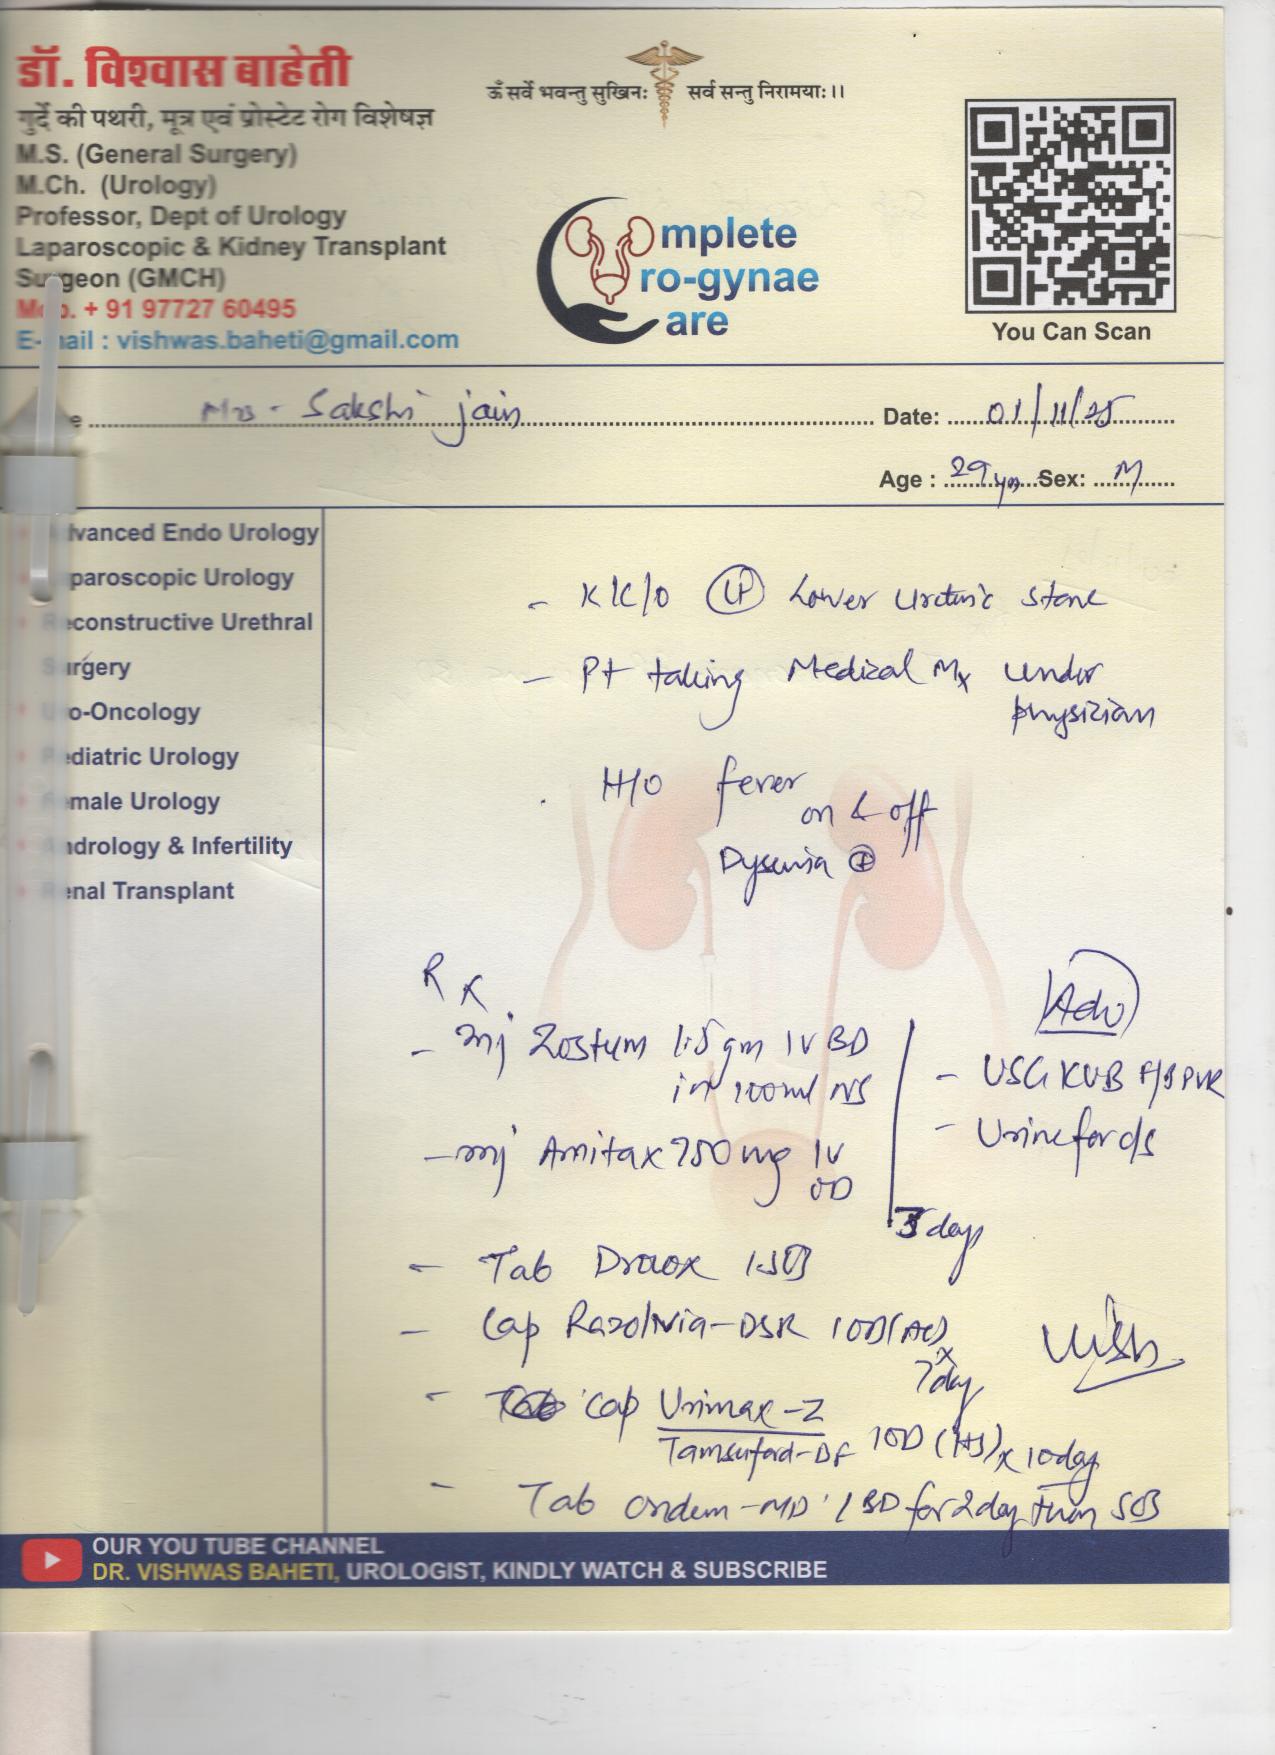 डॉ. विश्वास बाहेती
गुर्दे की पथरी, मूत्र एवं प्रोस्टेट रोग विशेषज्ञ
M.S. (General Surgery)
M.Ch. (Urology)
Professor, Dept of Urology
Laparoscopic & Kidney Transplant
Surgeon (GMCH)
Mob. + 91 97727 60495
E-mail : vishwas.baheti@gmail.com
ॐ सर्वे भवन्तु सुखिनः सर्व सन्तु निरामयाः।।
mplete
ro-gynae
are
You Can Scan
Mrs - Sakshi jain Date: 01/11/25
Age : 29 yrs Sex: M
Advanced Endo Urology
Laparoscopic Urology
Reconstructive Urethral
Surgery
Uro-Oncology
Pediatric Urology
Female Urology
Andrology & Infertility
Renal Transplant
- K/C/O Lower Ureteric stone
- Pt taking Medical Mx under
physician
H/O fever
on & off
Dysuria ⊕
Rx
- inj Zostum 1.5gm IV BD
in 100ml NS
- inj Amitax 750mg IV
OD
3 days
Adv
- USG KUB PVR
- Urine
- Tab 1 SOS
- Cap -DSR 1OD (AC)
x 7day
- Cap Urimax-Z
1OD (HS) x 10day
- Tab ondem-MD 1 BD for 2day then SOS
OUR YOU TUBE CHANNEL
DR. VISHWAS BAHETI, UROLOGIST, KINDLY WATCH & SUBSCRIBE